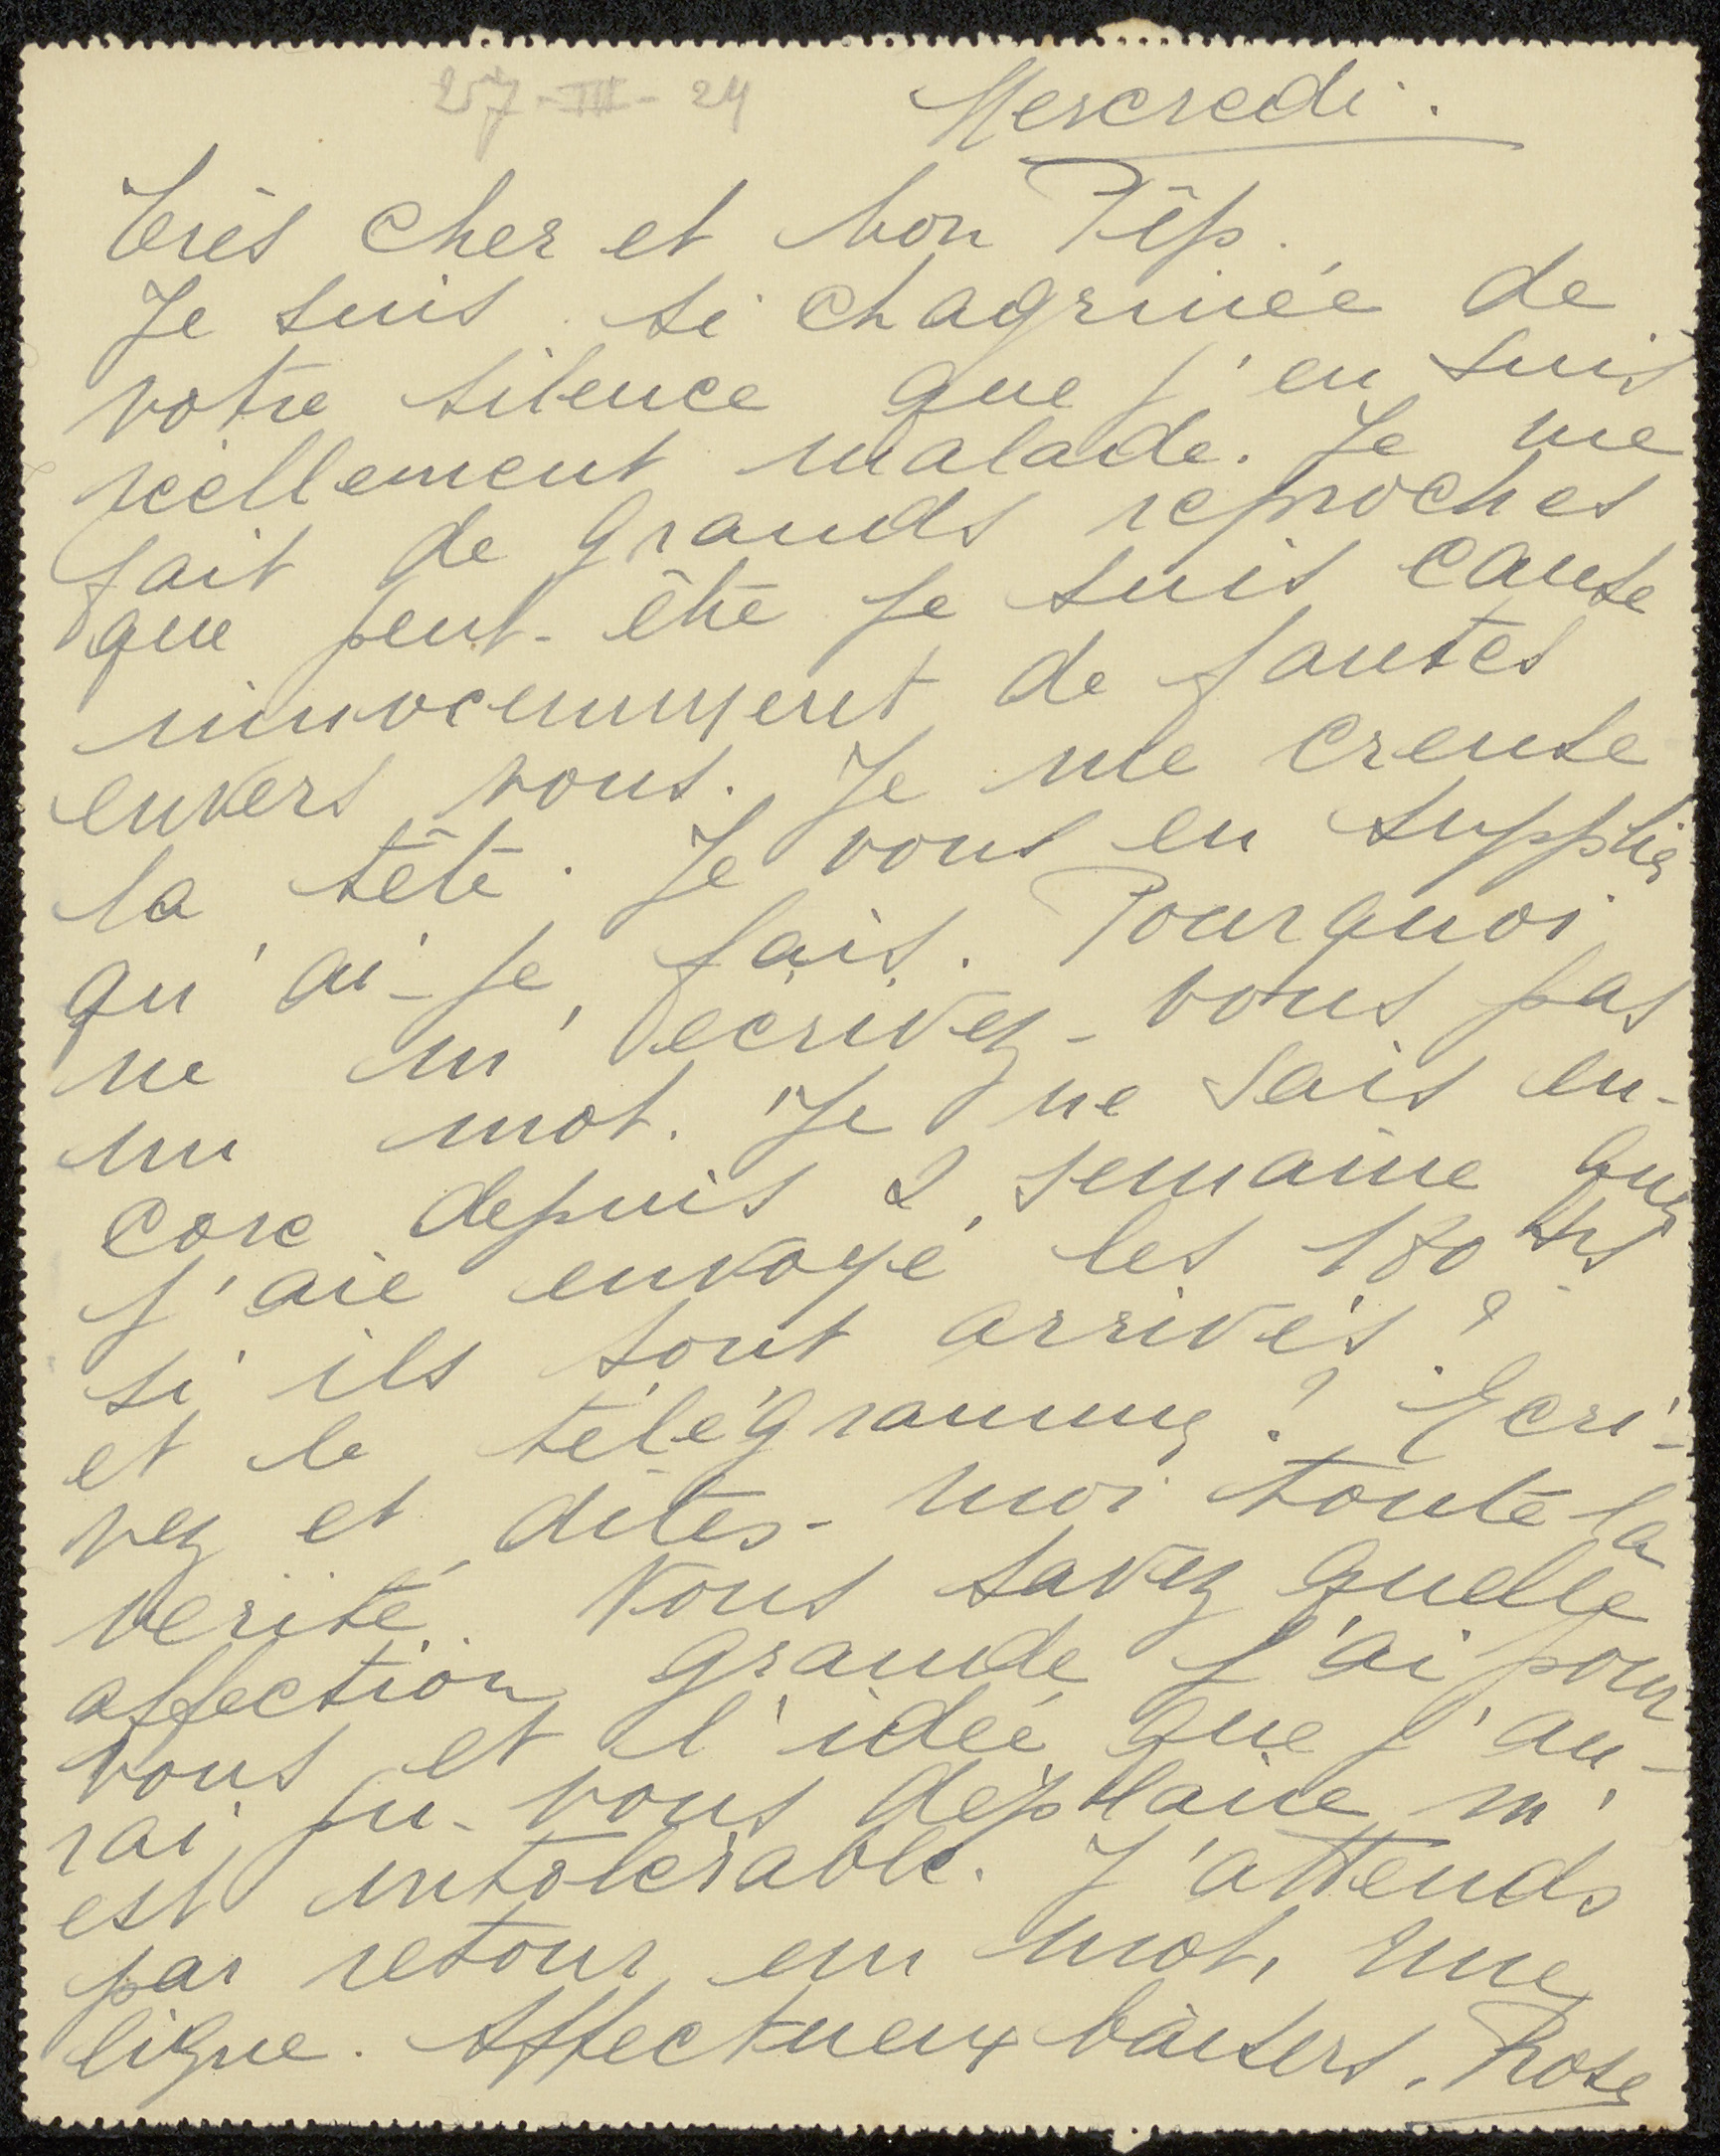 257-III-24
Mercredi.
Très cher et bon Pêp.
Je suis si chagrinée de
votre silence que j'en suis
réellement malade. Je me
fait de grands reproches
que peut-être je suis cause
innocemment de fautes
envers vous. Je me creuse
la tête. Je vous en supplie
qu'ai-je fais. Pourquoi
ne m'écrivez-vous pas
un mot. Je ne sais en-
core depuis 2 semaine que
j'aie envoyé les 180 frs
si ils sont arrivés?
et le télégramme? Ecri-
vez et dites-moi toute la
vérité. Vous savez quelle
affection grande j'ai pour
vous et l'idée que j'au-
rai pu-vous déplaire m'
est intolérable. J'attends
par retour un mot, une
ligne. Affectueux baisers. Rose